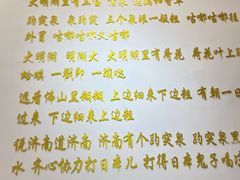 大明湖里有三宝
趵突泉 泉趵突 三个泉眼一般粗 咕嘟咕嘟
外冒 咕嘟咕嘟又咕嘟
大明湖 明湖大 大明湖里有荷花 荷花叶上
蛤蟆 一戳 一蹦跶
远看佛山黑糊糊 上边细来下边粗 有朝一日
过来 下边细来上边粗
俺济南道济南 济南有个趵突泉 趵突泉里
水 齐心协力打日本儿 打得日本鬼子